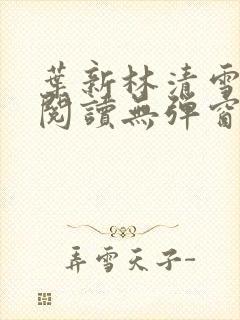 葉新林清雪
閱讀無彈窗
弄雪天子-